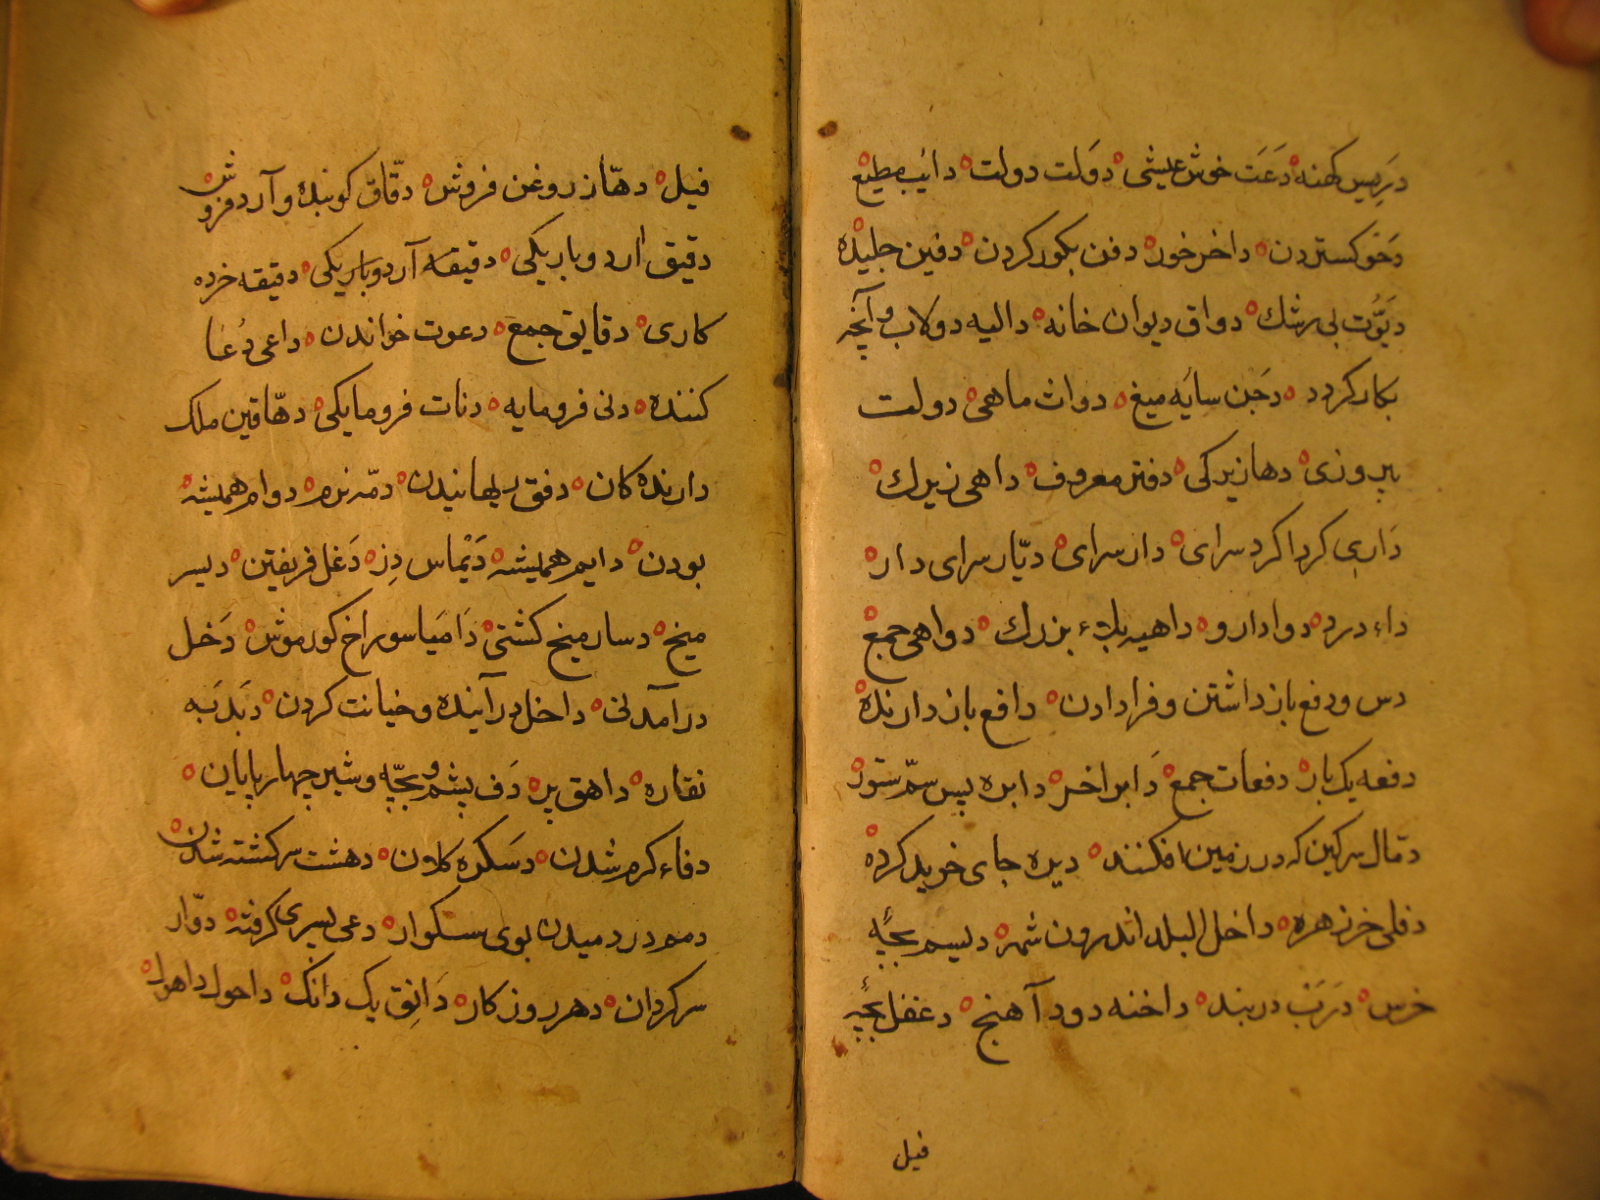 دَرِیس کهنه دَعَت خوش عیشی دَولت دولت دائب مطیع
دَحْو کستردن داخر خور دفن بکور کردن دفین جلیده
دیّوُث بی رشك دواق دیوان خانه دالیه دولاب وآنچه
بکار کردد دَجَن سایَه میغ دواث ماهی دولت
پیروزی دها زیرکی دفتر معروف داهی زیرك
دَاربی کرداکرد سرای دار سرای دیّار سرای دار
داء درد دوا دارو داهیه بلاء بزرك دواهی جمع
دس ودفع باز داشتن وفرا دادن دافع باز دارنده
دفعه یک بار دفعات جمع دَابر اخر دابره پس سمّ ستور
دمّال سرکین که در زمین افکنند دیره جای خرید کرده
دفلی خر زهره داخل البلد اندرون شهر دیسم بچّه
خرس دَرَبْ دربند داخنه دود آهنج دغفل بچّه
فیل
فیل دهّان روغن فروش دقّاق کوبنده وآرد فروش
دقیق ارد وباریکی دقیقه آرد وباریکی دقیقه خرده
کاری دقایق جمع دعوت خواندن داعی دُعَا
کننده دنی فرومایه دنات فرومایکی دهّاقین ملک
دارنده کان دفق جهانیدن دمّه نرم دوام همیشه
بودن دایم همیشه دَیْماس دِز دَغل فریفتن دیسر
میخ دسار میخ کشتی دَامَیا سوراخ کور موش دَخل
درآمدنی داخل درآینده وخیانت کردن دَبدَبَه
نقاره داهق پر دَف پشم وبچّه وشیر چهارپایان
دفاء کرم شدن دسَکره کلاون دهشت سرکشته شدن
دمم در دمیدن بوی ستکوار دعی پسری کرفته دوّار
سرکردان دهر روز کار دَانِق یک دانک داحول داهول